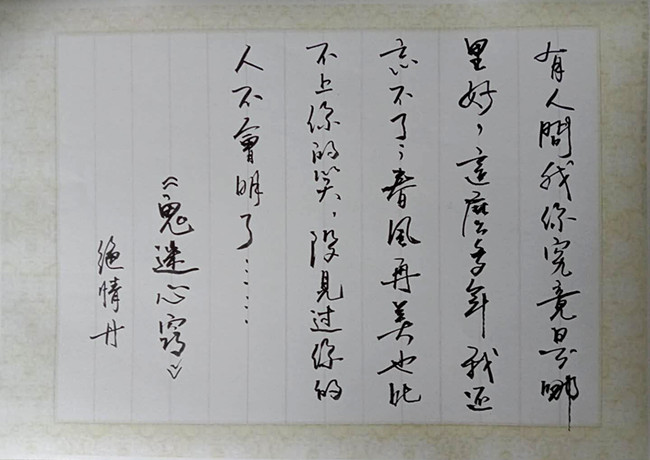 有人問我你究竟是哪
里好，這麼多年我还
忘不了，春風再美也比
不上你的笑，沒見过你的
人不會明了……
《鬼迷心窍》
绝情丹